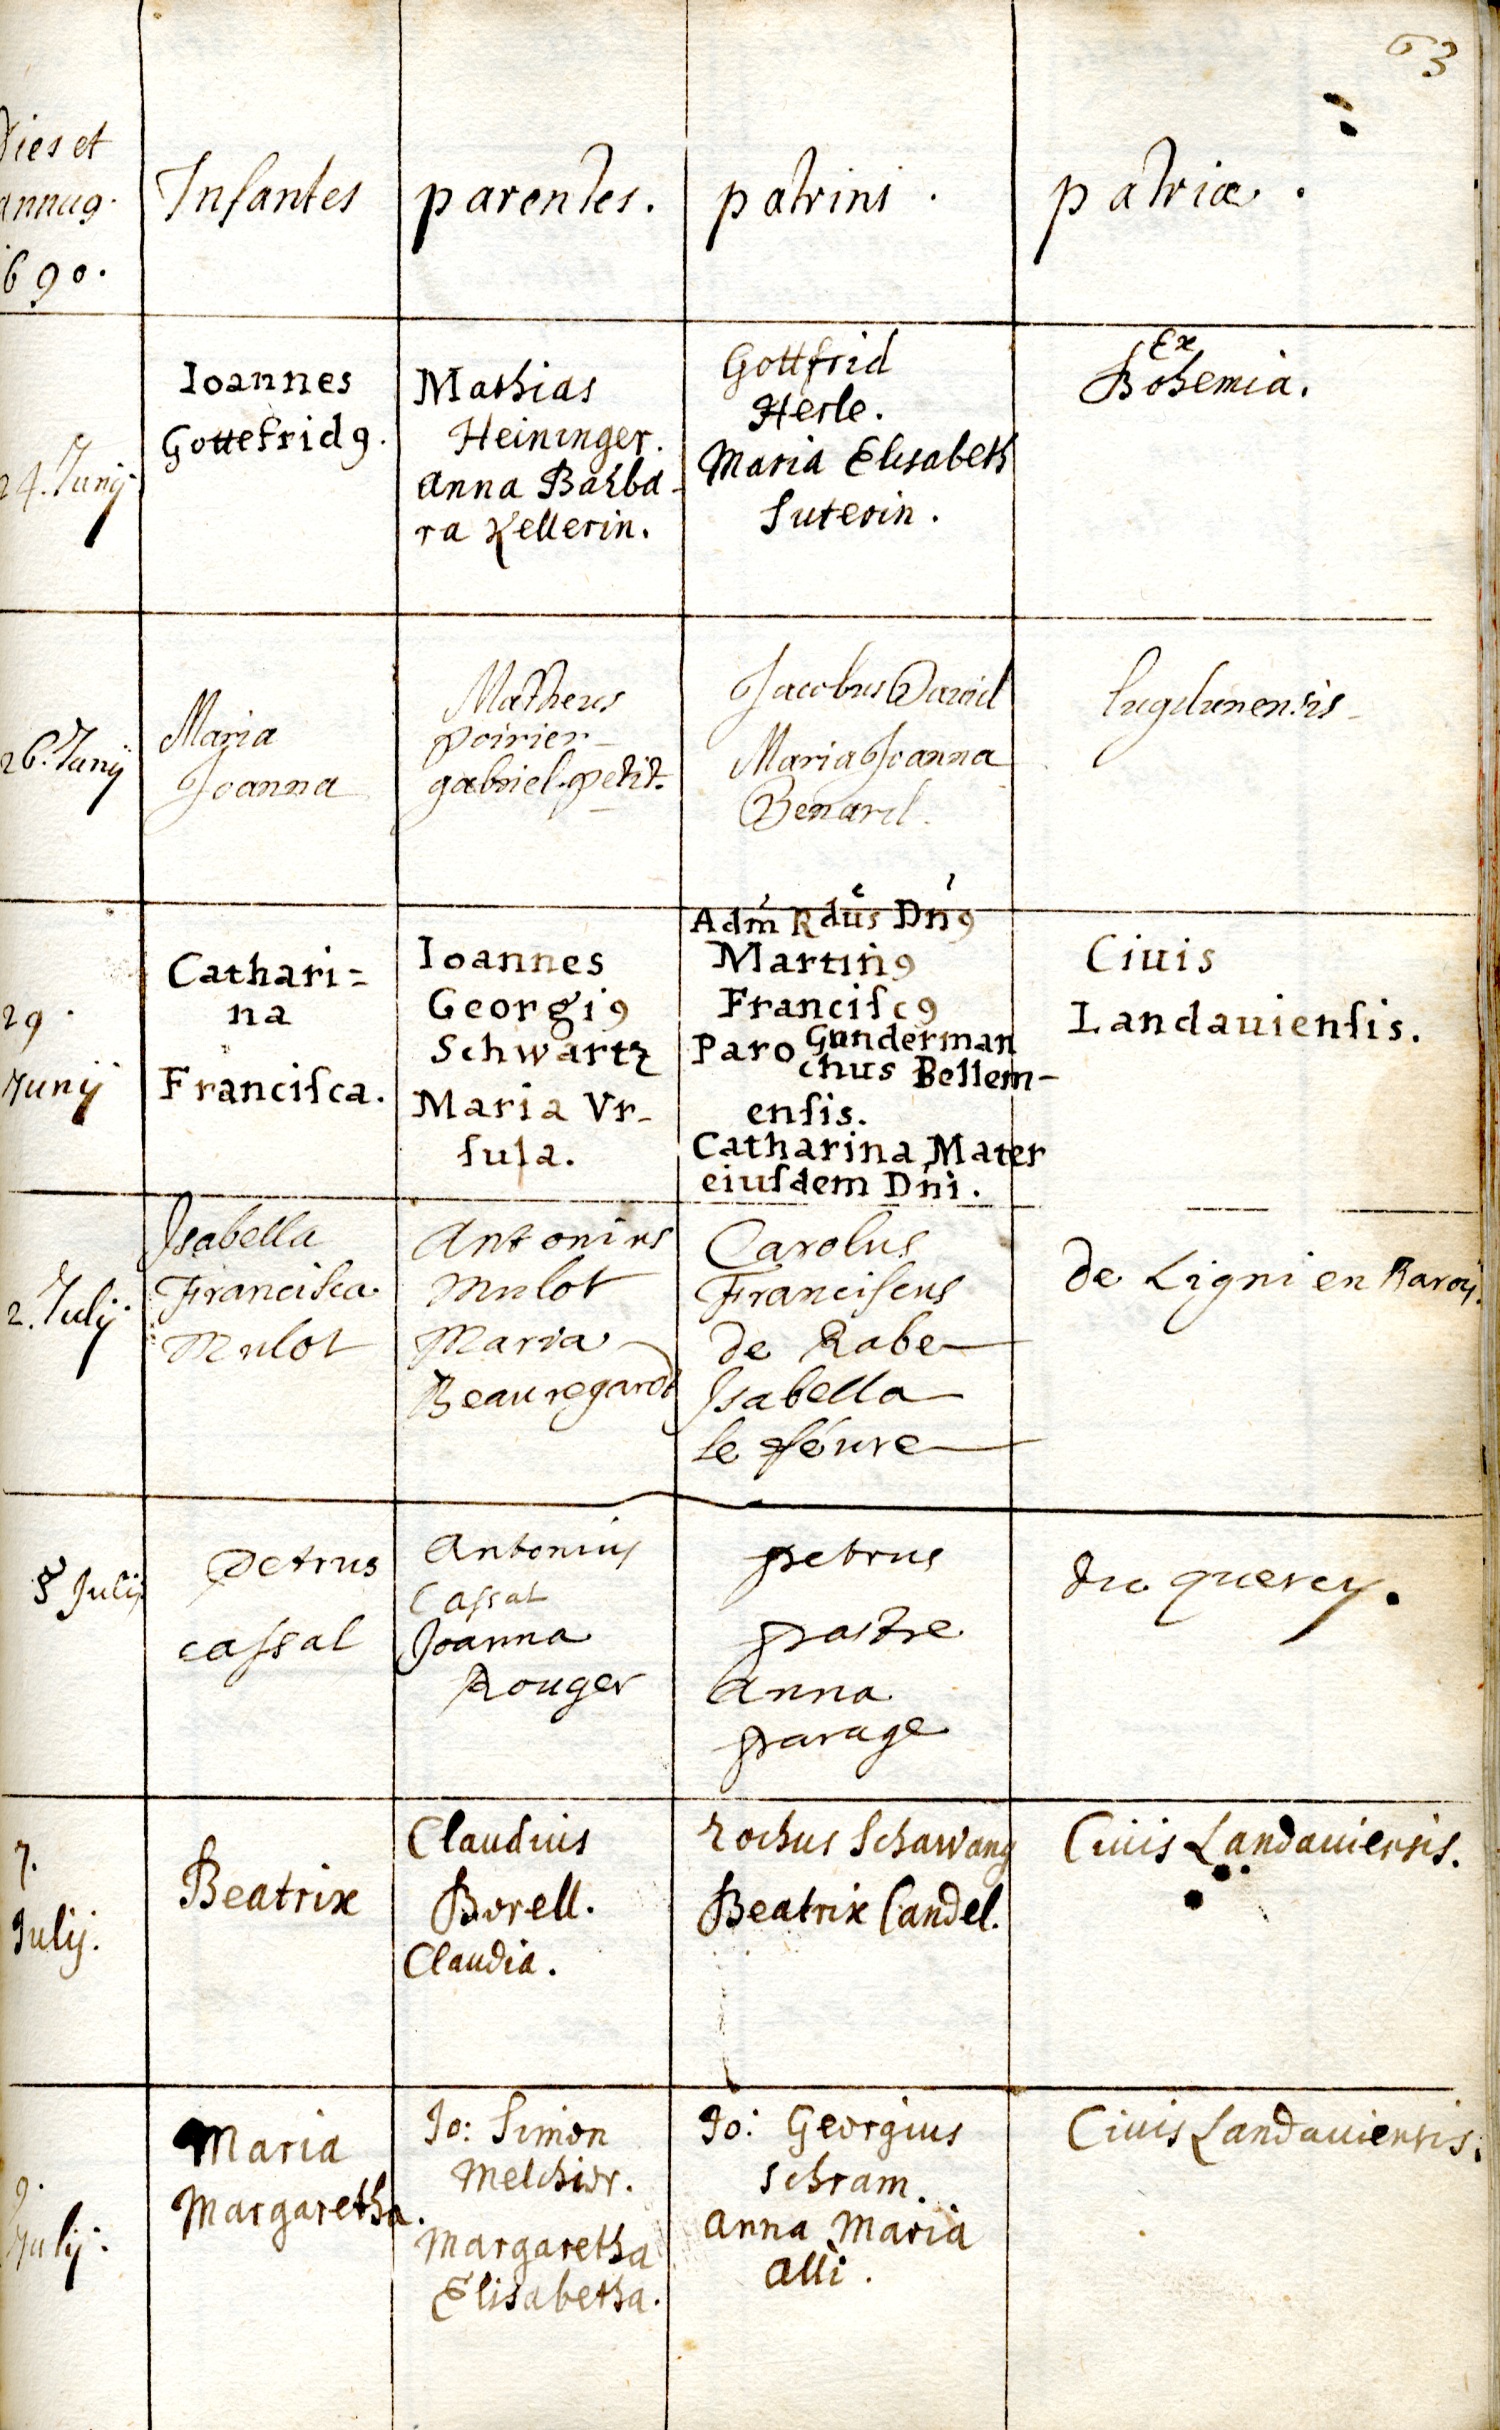 63
Dies et
annus.
1690.
Infantes
parentes.
patrini.
patriæ.
24. Junij
Ioannes
Gottefridꝰ.
Mathias
Heininger.
Anna Barba-
ra Kellerin.
Gottfrid
Herle.
Maria Elisabeth
Suterin.
Ex
Bohemia.
26. Junij
Maria
Joanna
Matheus
poirier
gabriel petit.
Jacobus David
Maria Joanna
Benard.
lugdunensis
29.
Junij
Cathari=
na
Franciſca.
Ioannes
Georgiꝰ
Schwartz
Maria Vr-
ſula.
Adm̄ Rdūs Dn̄ꝰ
Martinꝰ
Franciſcꝰ
Gunderman
Parochus Bellem-
enſis.
Catharina Mater
eiuſdem Dn̄i.
Ciuis
Landauienſis.
2. Julij
Isabella
Franciſca
Mulot
Antonius
Mulot
Maria
Beauregardt
Carolus
Franciſcus
de Rabe
Isabella
le féure
De Ligni en Baroi.
5 Julij
Petrus
caſsal
Antonius
Caſsal
Joanna
Rouger
petrus
prastre
Anna
parage
Du quercy.
7.
Julij.
Beatrix
Claudius
Borell.
Claudia.
Rochus Schawang
Beatrix Candel.
Ciuis Landauiensis.
9.
Julij.
Maria
Margaretha.
Jo: Simon
Melchior.
Margaretha
Elisabetha.
Jo: Georgius
Schram.
Anna Maria
Alli.
Ciuis Landauiensis.